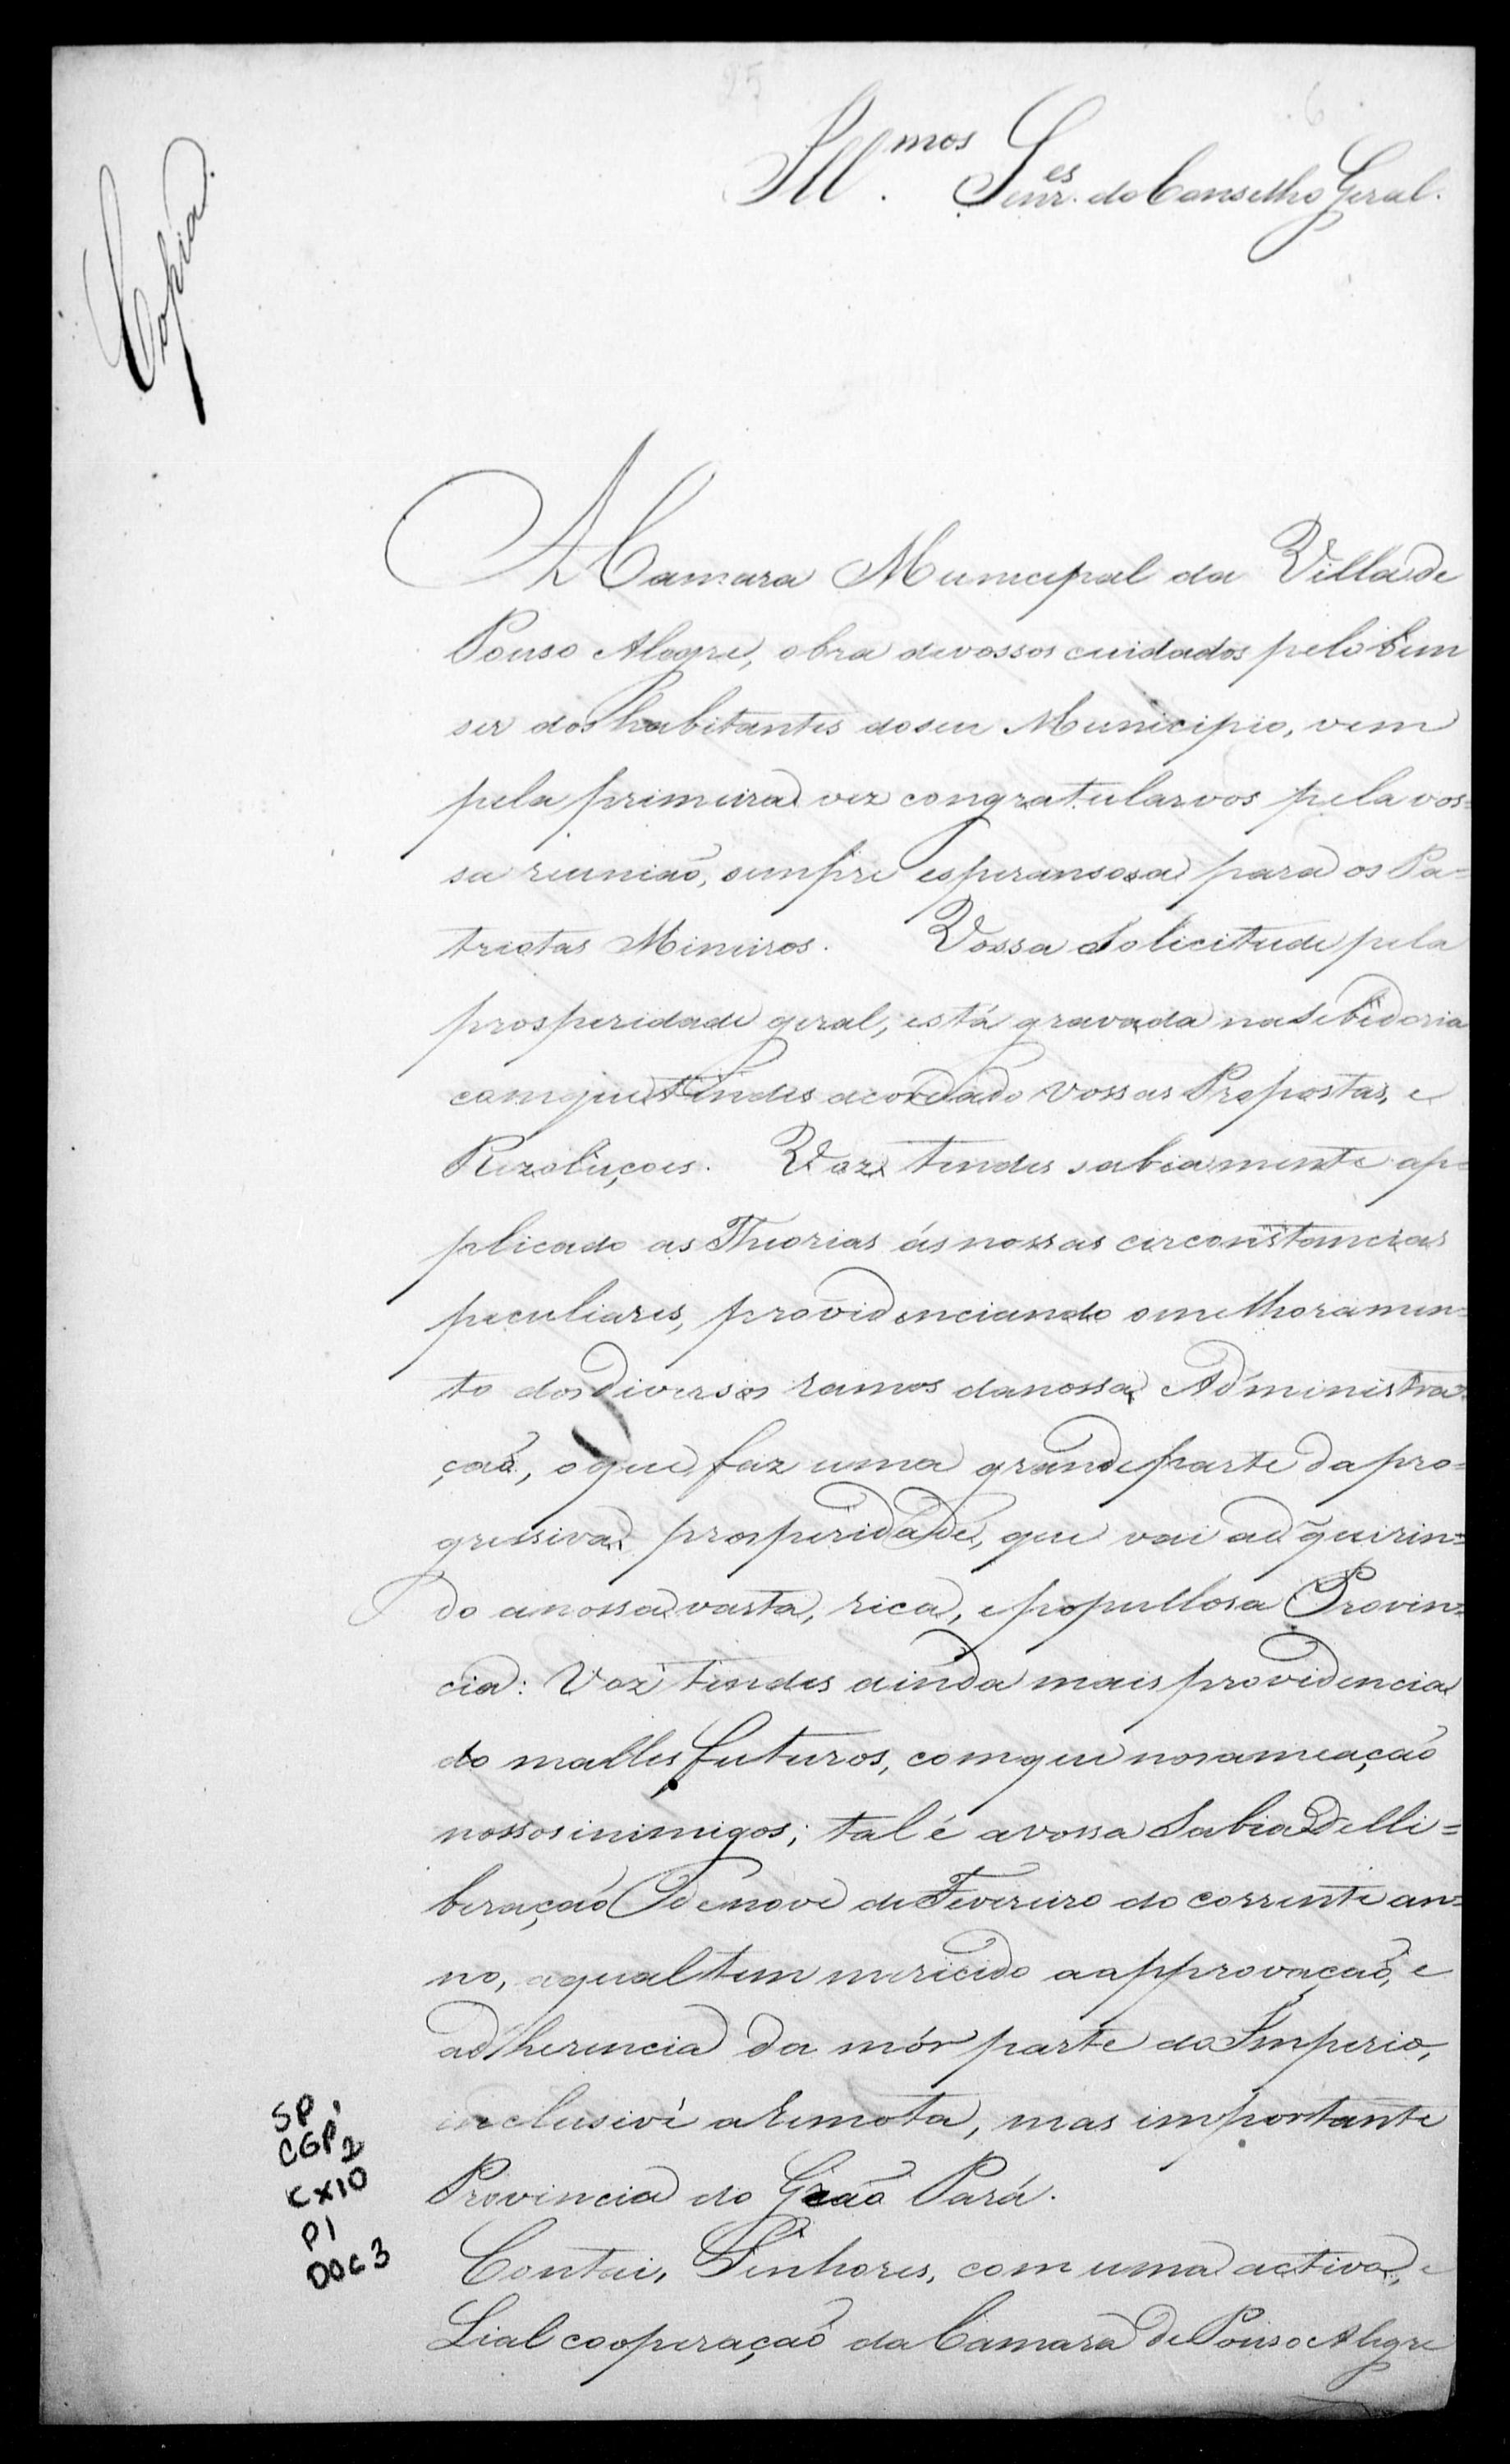 Copia.
25
6
Ill.mos Senr.es do Conselho Geral.
A Camara Municipal da Villa de
Pouso Alegre, obra devossos cuidados pelo bem
ser dos habitantes doseu Municipio, vem
pela primeira vez congratularvos pela vos=
sa reunião, sempre esperansosa para os Pa=
triotas Mineiros. Vossa Solicitude pela
prosperidade geral, está gravada naSebedoria
comque tendes acordado vossas Propostas, e
Rezoluçoes. Voz tendes sabiamente ap=
plicado as Theorias ásnossas circonstancias
peculiares, providenciando omelhoramen=
to dosdiversos ramos danossa Administra=
çaõ, oque faz uma grande parte da pro=
gressiva prosperidade, que vai adquirin=
do anossa vasta, rica, epopullosa Provin=
cia: Voz tendes ainda mais providencia
do malles futuros, comque nosameaçaõ
nossosinimigos; tal é avossa Sabia Delli=
beraçaõ de nove de Fevereiro do corrente an=
no, aqual tem merecido aapprovaçaõ, e
adherencia da mór parte do Imperio,
inclusivé aremota, mas importante
Provincia do Graõ Pará.
Contai, Senhores, com uma activa, e
Lial cooperaçaõ da Camara de Pouso Alegre
SP,
CGP,2
CX10
P1
DOC3